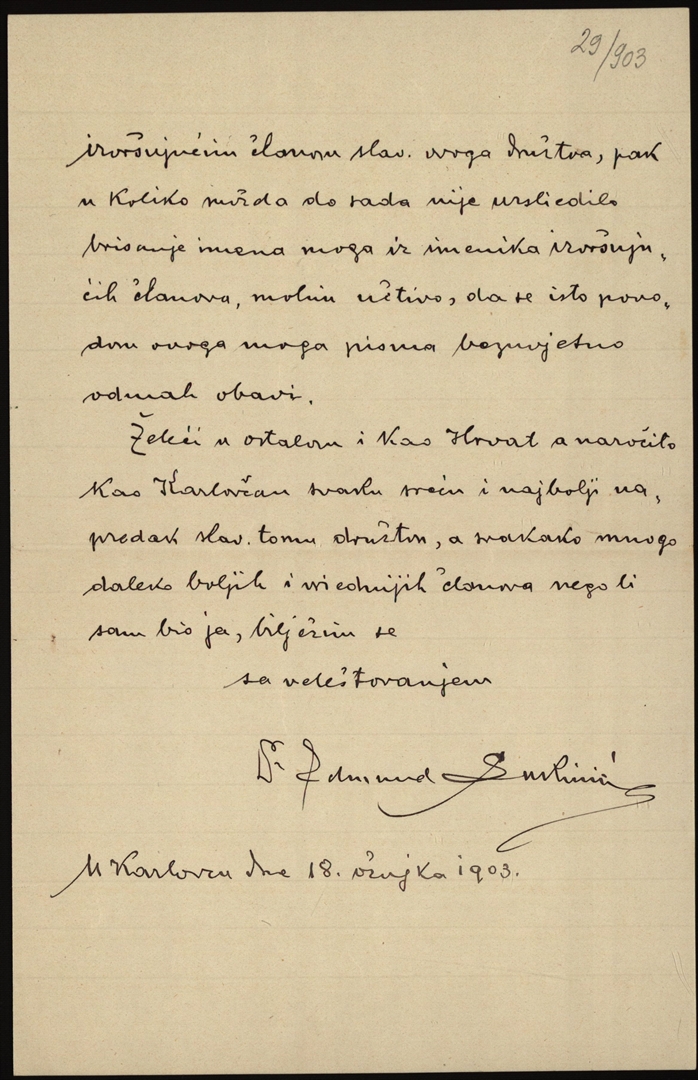 29/903
izvršujućim članom slav. ovoga družtva, pak
u koliko možda do sada nije usliedilo
brisanje imena moga iz imenika izvršuju„
ćih članova, molim učtivo, da se isto povo„
dom ovoga moga pisma bezuvjetno
odmah obavi.
Želeći u ostalom i kao Hrvat a naročito
kao Karlovčan svaku sreću i najbolji na„
predak slav. tomu družtvu, a svakako mnogo
daleko boljih i vriednijih članova nego li
sam bio ja, bilježim se
sa veleštovanjem
Dr Edmund
U Karlovcu dne 18. ožujka 1903.